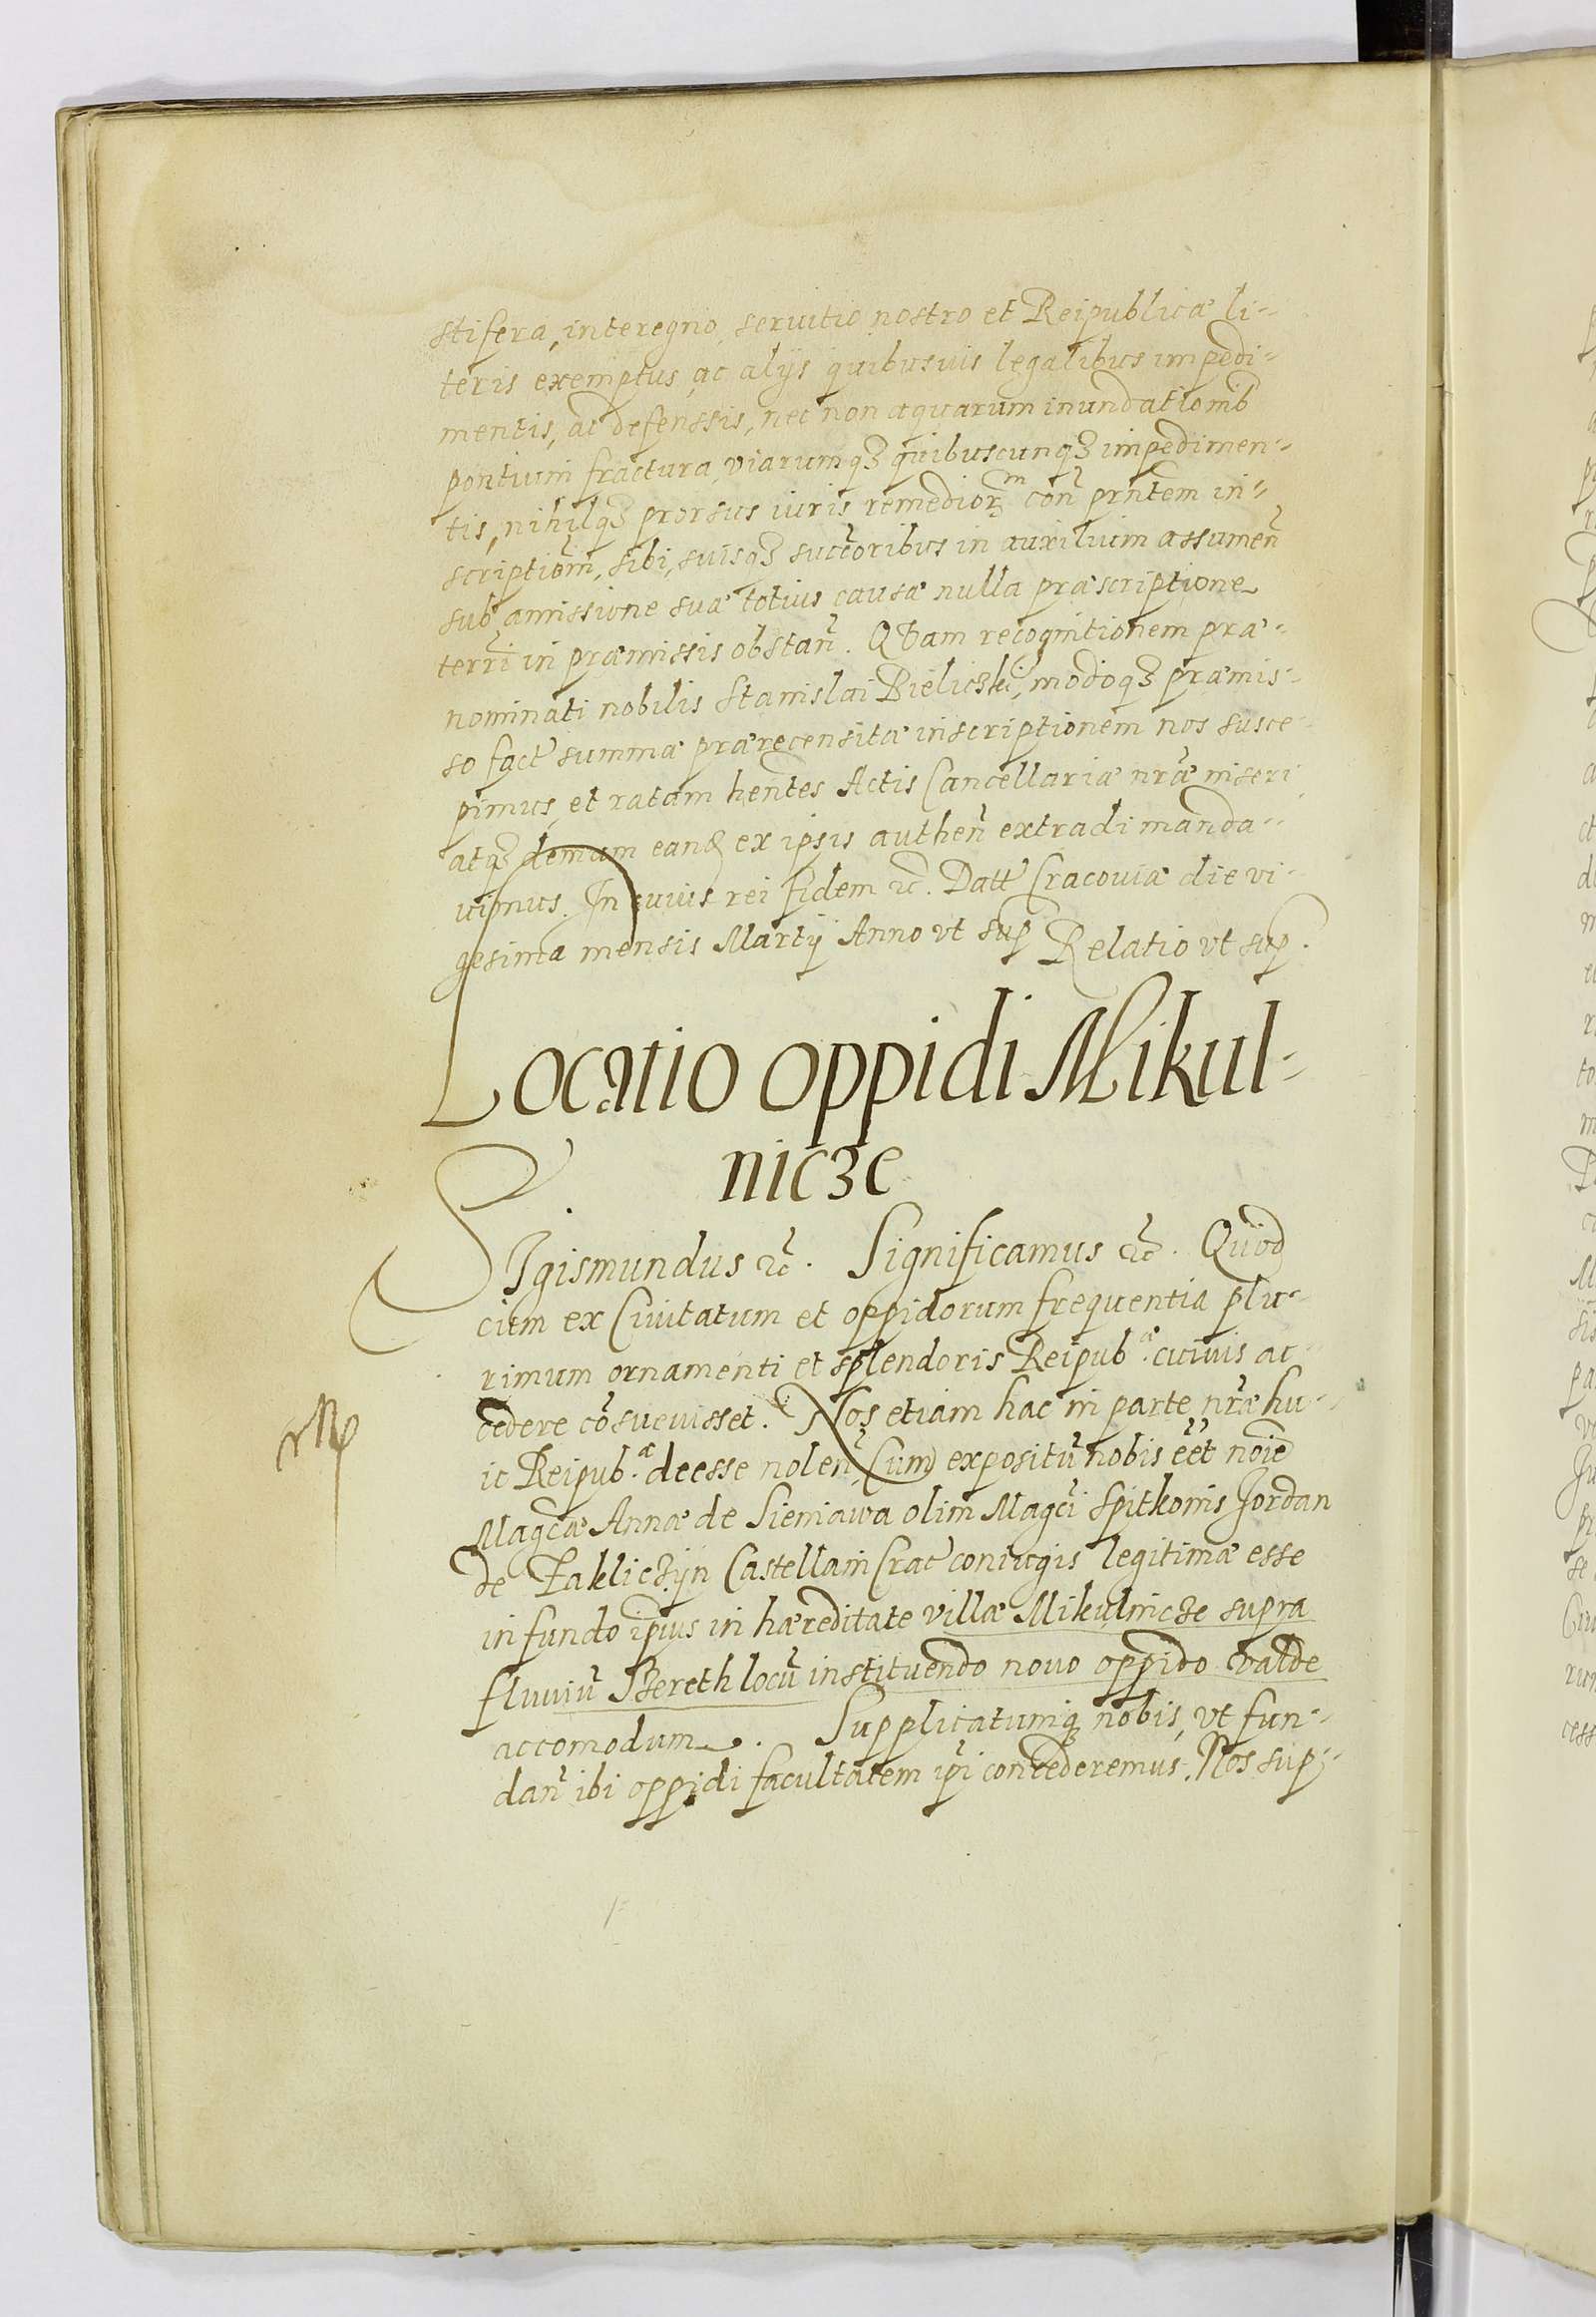 stifera, interegno, seruitio nostro et Reipublicæ li-
teris exemptus, ac alijs quibusuis legalibus impedi-
mentis, ac defenssis, nec non aquarum inundationib
pontium fractura, viarumqꝫ quibuscunqꝫ impedimen-
tis, nihilqꝫ prorsus iuris remedioꝝ con̄ prn̄tem in-
scriptiom̄, sibi, suisqꝫ succ̄oribus in auxilium assumen̄
sub amissione suæ totius causæ nulla præscriptione
terri in præmissis obstan̄. QVam recognitionem præ-
nominati nobilis Stanislai Bieliczki, modoqꝫ præmis-
so fact summæ præcensitæ inscriptionem nos susce
pimus, et ratam hen̄tes Actis Cancellariæ nr̄æ inseri
atqꝫ demum eand ex ipsis authen̄ extradi manda-
uimus. In cuius rei fidem ꝛc̄. Datt Cracouiæ die vi-
gesima mensis Martij Anno vt sup Relatio vt sup.
Locatio oppidi Mikul-
nicze
SIgismundus ꝛc̄. Significamus ꝛc̄. Quod
cum ex Ciuitatum et oppidorum frequentia plu-
rimum ornamenti et splendoris Reipub.æ cuiuis ac
cedere cōsueuisset. Nos etiam hac in parte nr̄æ hu-
ic Reipub.æ deesse nolen̄, Cum expositū nobis eēt noīe
Magcæ Annæ de Sieniawa olim Magci Spitkonis Jordan
de Zakliczijn Castellani Crac coniugis legitimæ esse
in fundo ipīus in hæreditate villæ Mikulnicze supra
fluuiū Szereth locū instituendo nouo oppido valde
accomodum. Supplicatumqꝫ nobis, vt fun-
dan̄ ibi oppidi facultatem ipī concederemus. Nos sup-